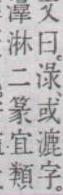 文曰渌或漉字
淋二篆宜類